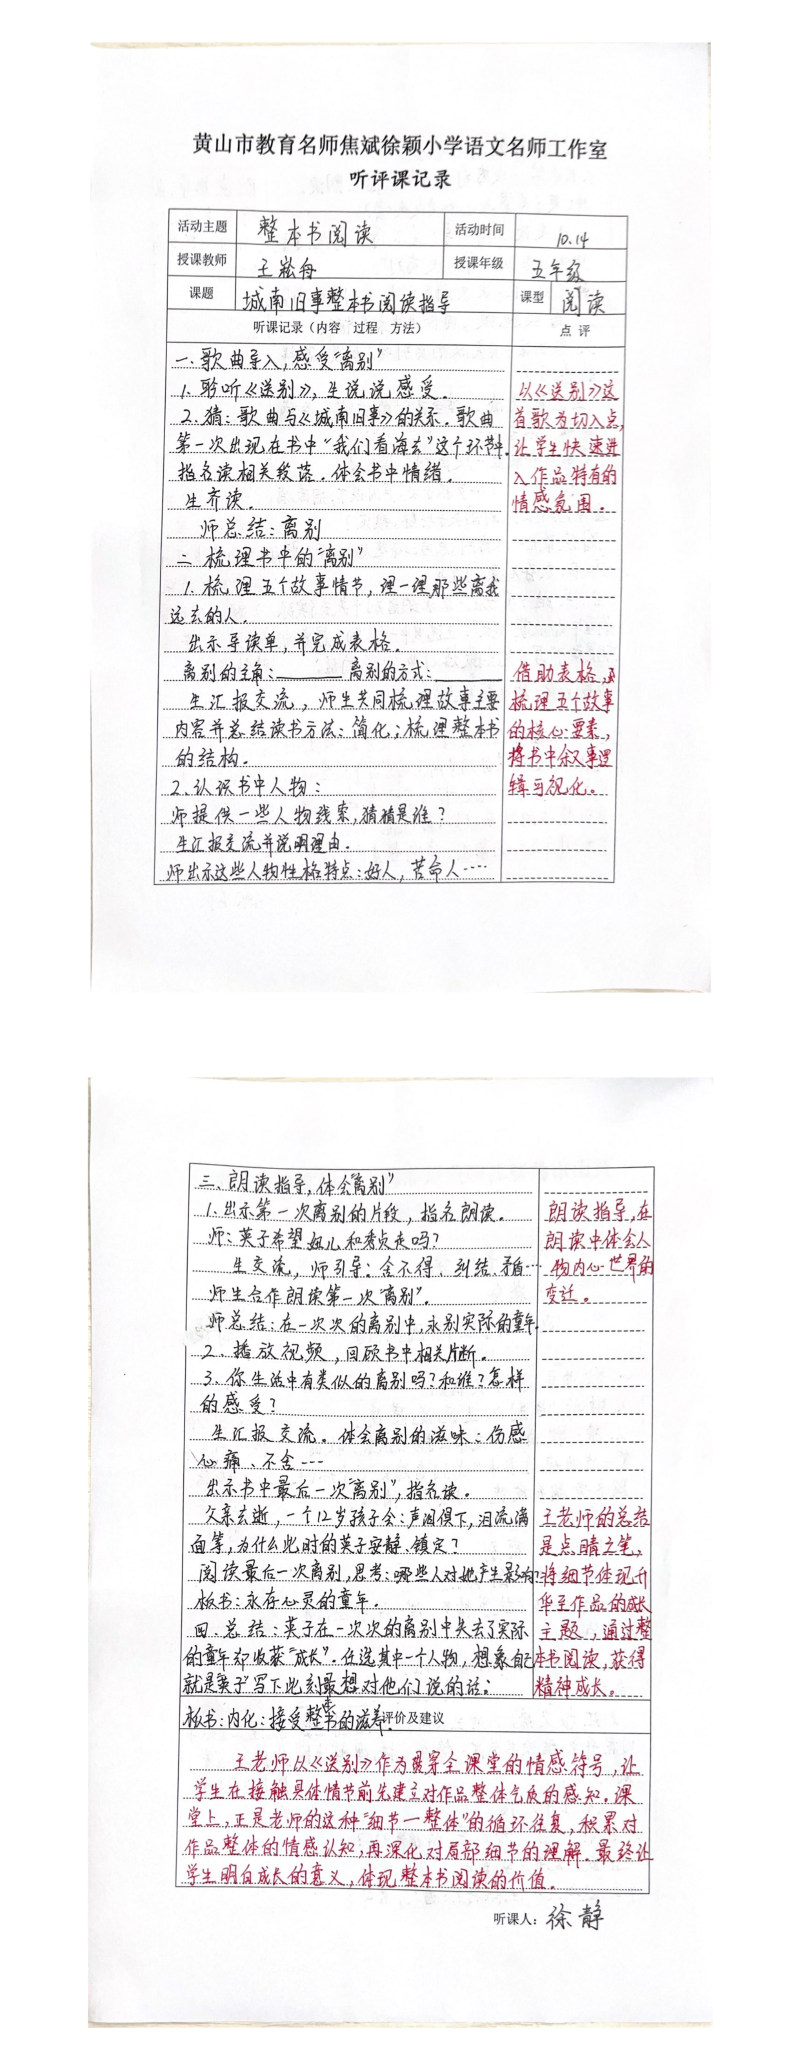 黄山市教育名师焦斌徐颖小学语文名师工作室
听评课记录
活动主题 整本书阅读 活动时间 10.14
授课教师 王崧舟 授课年级 五年级
课题 城南旧事整本书阅读指导 课型 阅读
听课记录（内容 过程 方法） 点评
一、歌曲导入，感受“离别”
1. 聆听《送别》，生说说感受。
2. 猜：歌曲与《城南旧事》的关系。歌曲
第一次出现在书中“我们看海去”这个环节中。
指名读相关段落。体会书中情绪。
生齐读。
师总结：离别
二、梳理书中的“离别”
1. 梳理五个故事情节，理一理那些离我
远去的人。
出示导读单，并完成表格。
离别的主角：______ 离别的方式：______
生汇报交流，师生共同梳理故事主要
内容并总结读书方法：简化；梳理整本书
的结构。
2、认识书中人物：
师提供一些人物线索，猜猜是谁？
生汇报交流并说明理由。
师出示这些人物性格特点：好人，苦命人……
以《送别》这
首歌为切入点，
让学生快速进
入作品特有的
情感氛围。
借助表格，
梳理五个故事
的核心要素，
将书中叙事逻
辑可视化。
三、朗读指导，体会“离别”
1. 出示第一次离别的片段，指名朗读。
师：英子希望妞儿和秀贞走吗？
生交流，师引导：舍不得、纠结、矛盾…
师生合作朗读第一次“离别”。
师总结：在一次次的离别中，永别实际的童年。
2、播放视频，回顾书中相关片断。
3、你生活中有类似的离别吗？和谁？怎样
的感受？
生汇报交流。体会离别的滋味：伤感
心痛、不舍……
出示书中最后一次“离别”，指名读。
父亲去逝，一个12岁孩子会：声泪俱下，泪流满
面等，为什么此时的英子安静、镇定？
阅读最后一次离别，思考：哪些人对她产生影响？
板书：永存心灵的童年。
四、总结：英子在一次次的离别中失去了实际
的童年却收获“成长”。任选其中一个人物，想象自己
就是英子写下此刻最想对他们说的话：
板书：内化：接受整本书的滋养。
朗读指导，在
朗读中体会人
物内心世界的
变迁。
王老师的总结
是点睛之笔，
将细节体现升
华至作品的成长
主题，通过整
本书阅读，获得
精神成长。
评价及建议
王老师以《送别》作为贯穿全课堂的情感符号，让
学生在接触具体情节前先建立对作品整体气质的感知。课
堂上，正是老师的这种“细节—整体”的循环往复，积累对
作品整体的情感认知，再深化对局部细节的理解。最终让
学生明白成长的意义，体现整本书阅读的价值。
听课人：徐静